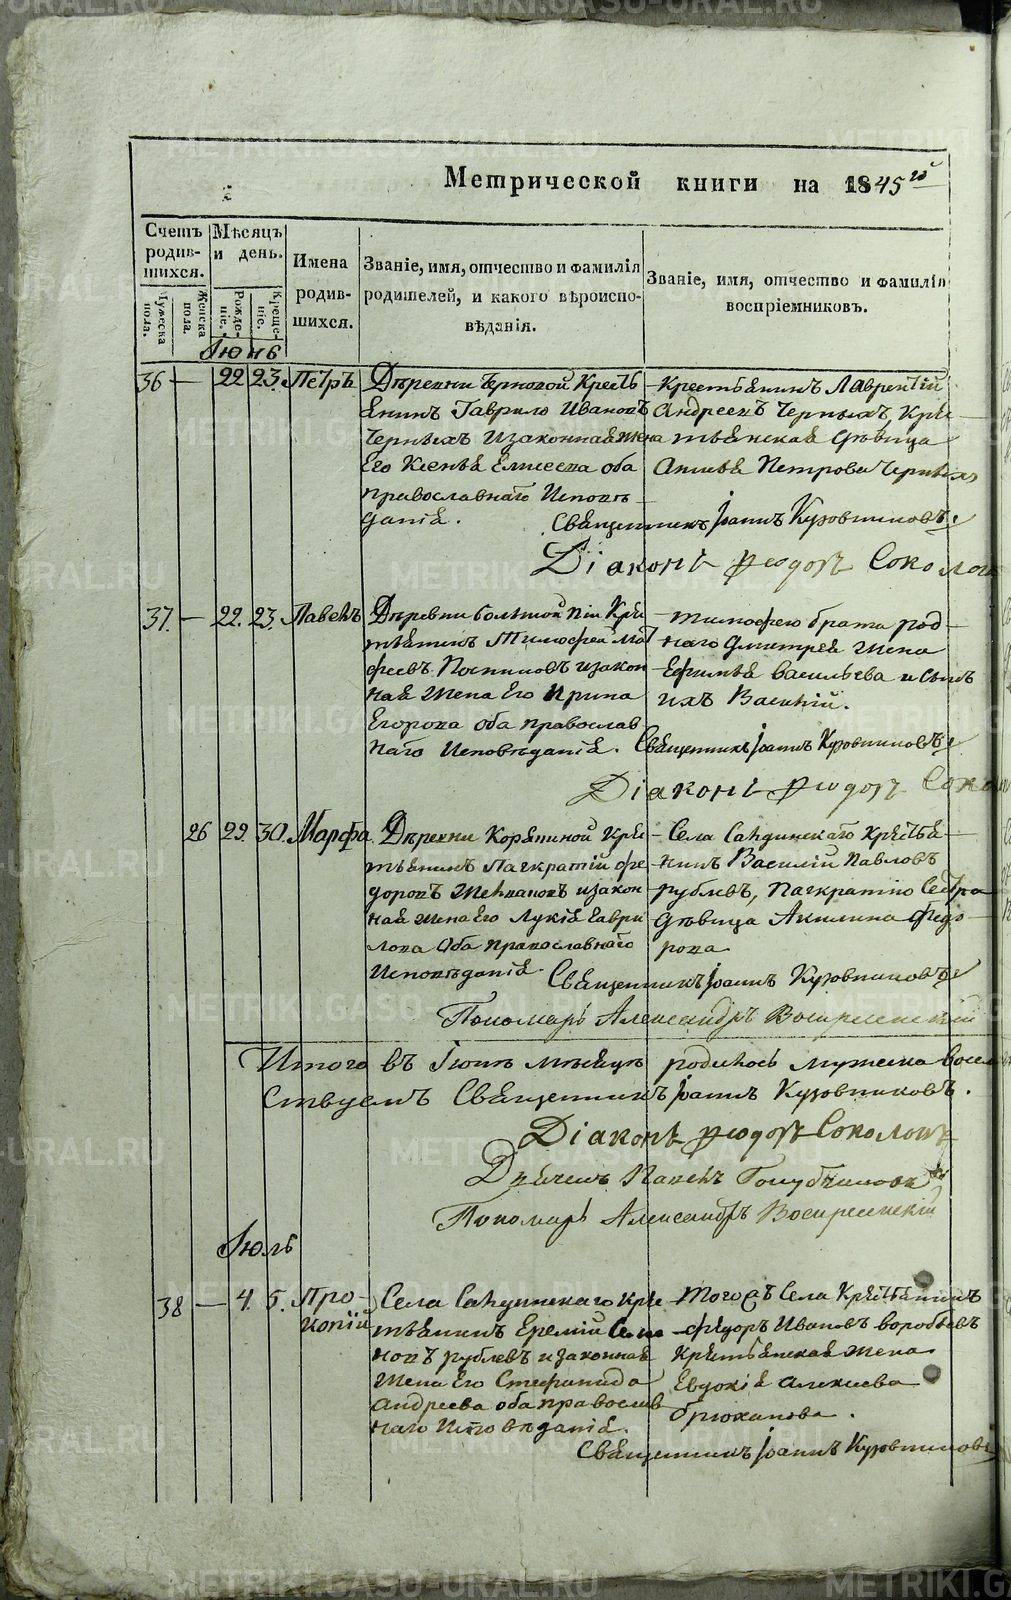 Метрической книги на 1845 го
Счетъ родив-шихся.
Мужеска пола.
Женска пола.
Мѣсяцъ и день.
Рожде-ніе.
Креще-ніе.
Имена родив-шихся.
Званіе, имя, отчество и фамилія родителей, и какого вѣроиспо-вѣданія.
Званіе, имя, отчество и фамилія воспріемниковъ.
Іюнь
36 — 22 23. Петръ
Деревни Черновой Кресть
янинъ Гаврило Ивановъ
Черныхъ и законная жена
Его Ксенья Елисеева оба
православнаго Исповѣ
данія.
Крестьянинъ Лаврентій
Андреевъ Черныхъ, Крес—
тьянская дѣвица
Петрова Черныхъ
Священникъ Іоаннъ Кузовниковъ.
Діаконъ Ѳеодоръ Соколовъ
37. — 22. 23. Павелъ
Деревни Большой Кре
тьянинъ Тимофей Мат
феевъ Поспеловъ и закон
ная жена Его Ирина
Егорова оба православ
наго Исповѣданія.
Тимофею брата род—
наго Дмитрея жена
Ефимья Васильева и сынъ
ихъ Василій.
Священникъ Іоаннъ Кузовниковъ
Діаконъ Ѳеодоръ
26 29. 30. Марфа
Деревни Корякиной Кре
тьянинъ Панкратій Фе
доровъ и закон
ная жена Его Лукія Гаври
лова Оба православнаго
Исповѣданія.
Села Крестья—
нинъ Василій Павловъ
рублевъ, Панкратію Сестра
дѣвица Акилина Федо
рова
Священникъ Іоаннъ Кузовниковъ
Пономарь Александръ Воскресенскій
Итого въ Іюнѣ мѣсяцѣ родилось мужеска
Священникъ Іоаннъ Кузовниковъ.
Діаконъ Ѳеодоръ Соколовъ
Дьячекъ Павелъ
Пономарь Александръ Воскресенскій
Іюль
38 — 4. 5. Про-
копій
Села Кре
тьянинъ Еремій Семе
новъ рублевъ и законная
Жена Его Стефанида
Андреева оба православ
наго Исповѣданія.
Тогожъ Села Крестьянинъ
Федоръ Ивановъ Воробьевъ
Крестьянская жена
Евдокія Алексеева
брюханова.
Священникъ Іоаннъ Кузовниковъ
METRIKI.GASO-URAL.RU